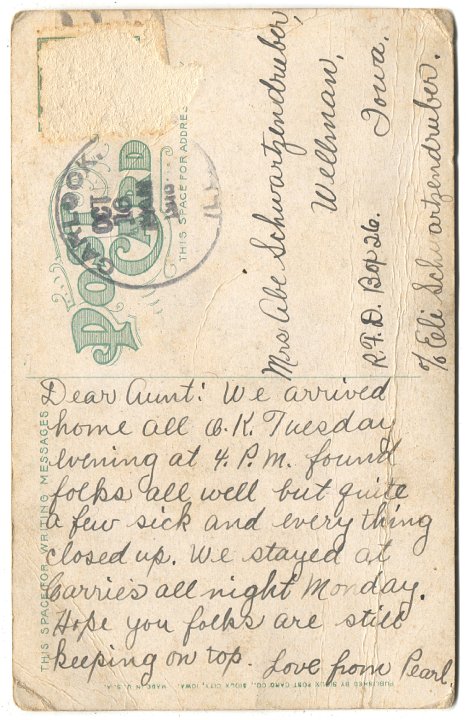 POST CARD
THIS SPACE FOR ADDRESS
CARLOCK,
Mrs Abe Schwartzendruber,
Wellman,
Iowa.
R.F.D. Box 26.
℅ Eli Schwartzendruber.
THIS SPACE FOR WRITING MESSAGES
Dear Aunt: We arrived
home all O.K. Tuesday
evening at 4. P.M. found
folks all well but quite
a few sick and every thing
closed up. We stayed at
Carries all night Monday.
Hope you folks are still
keeping on top. Love from Pearl.
PUBLISHED BY SIOUX POST CARD CO., SIOUX CITY, IOWA. MADE IN U.S.A.